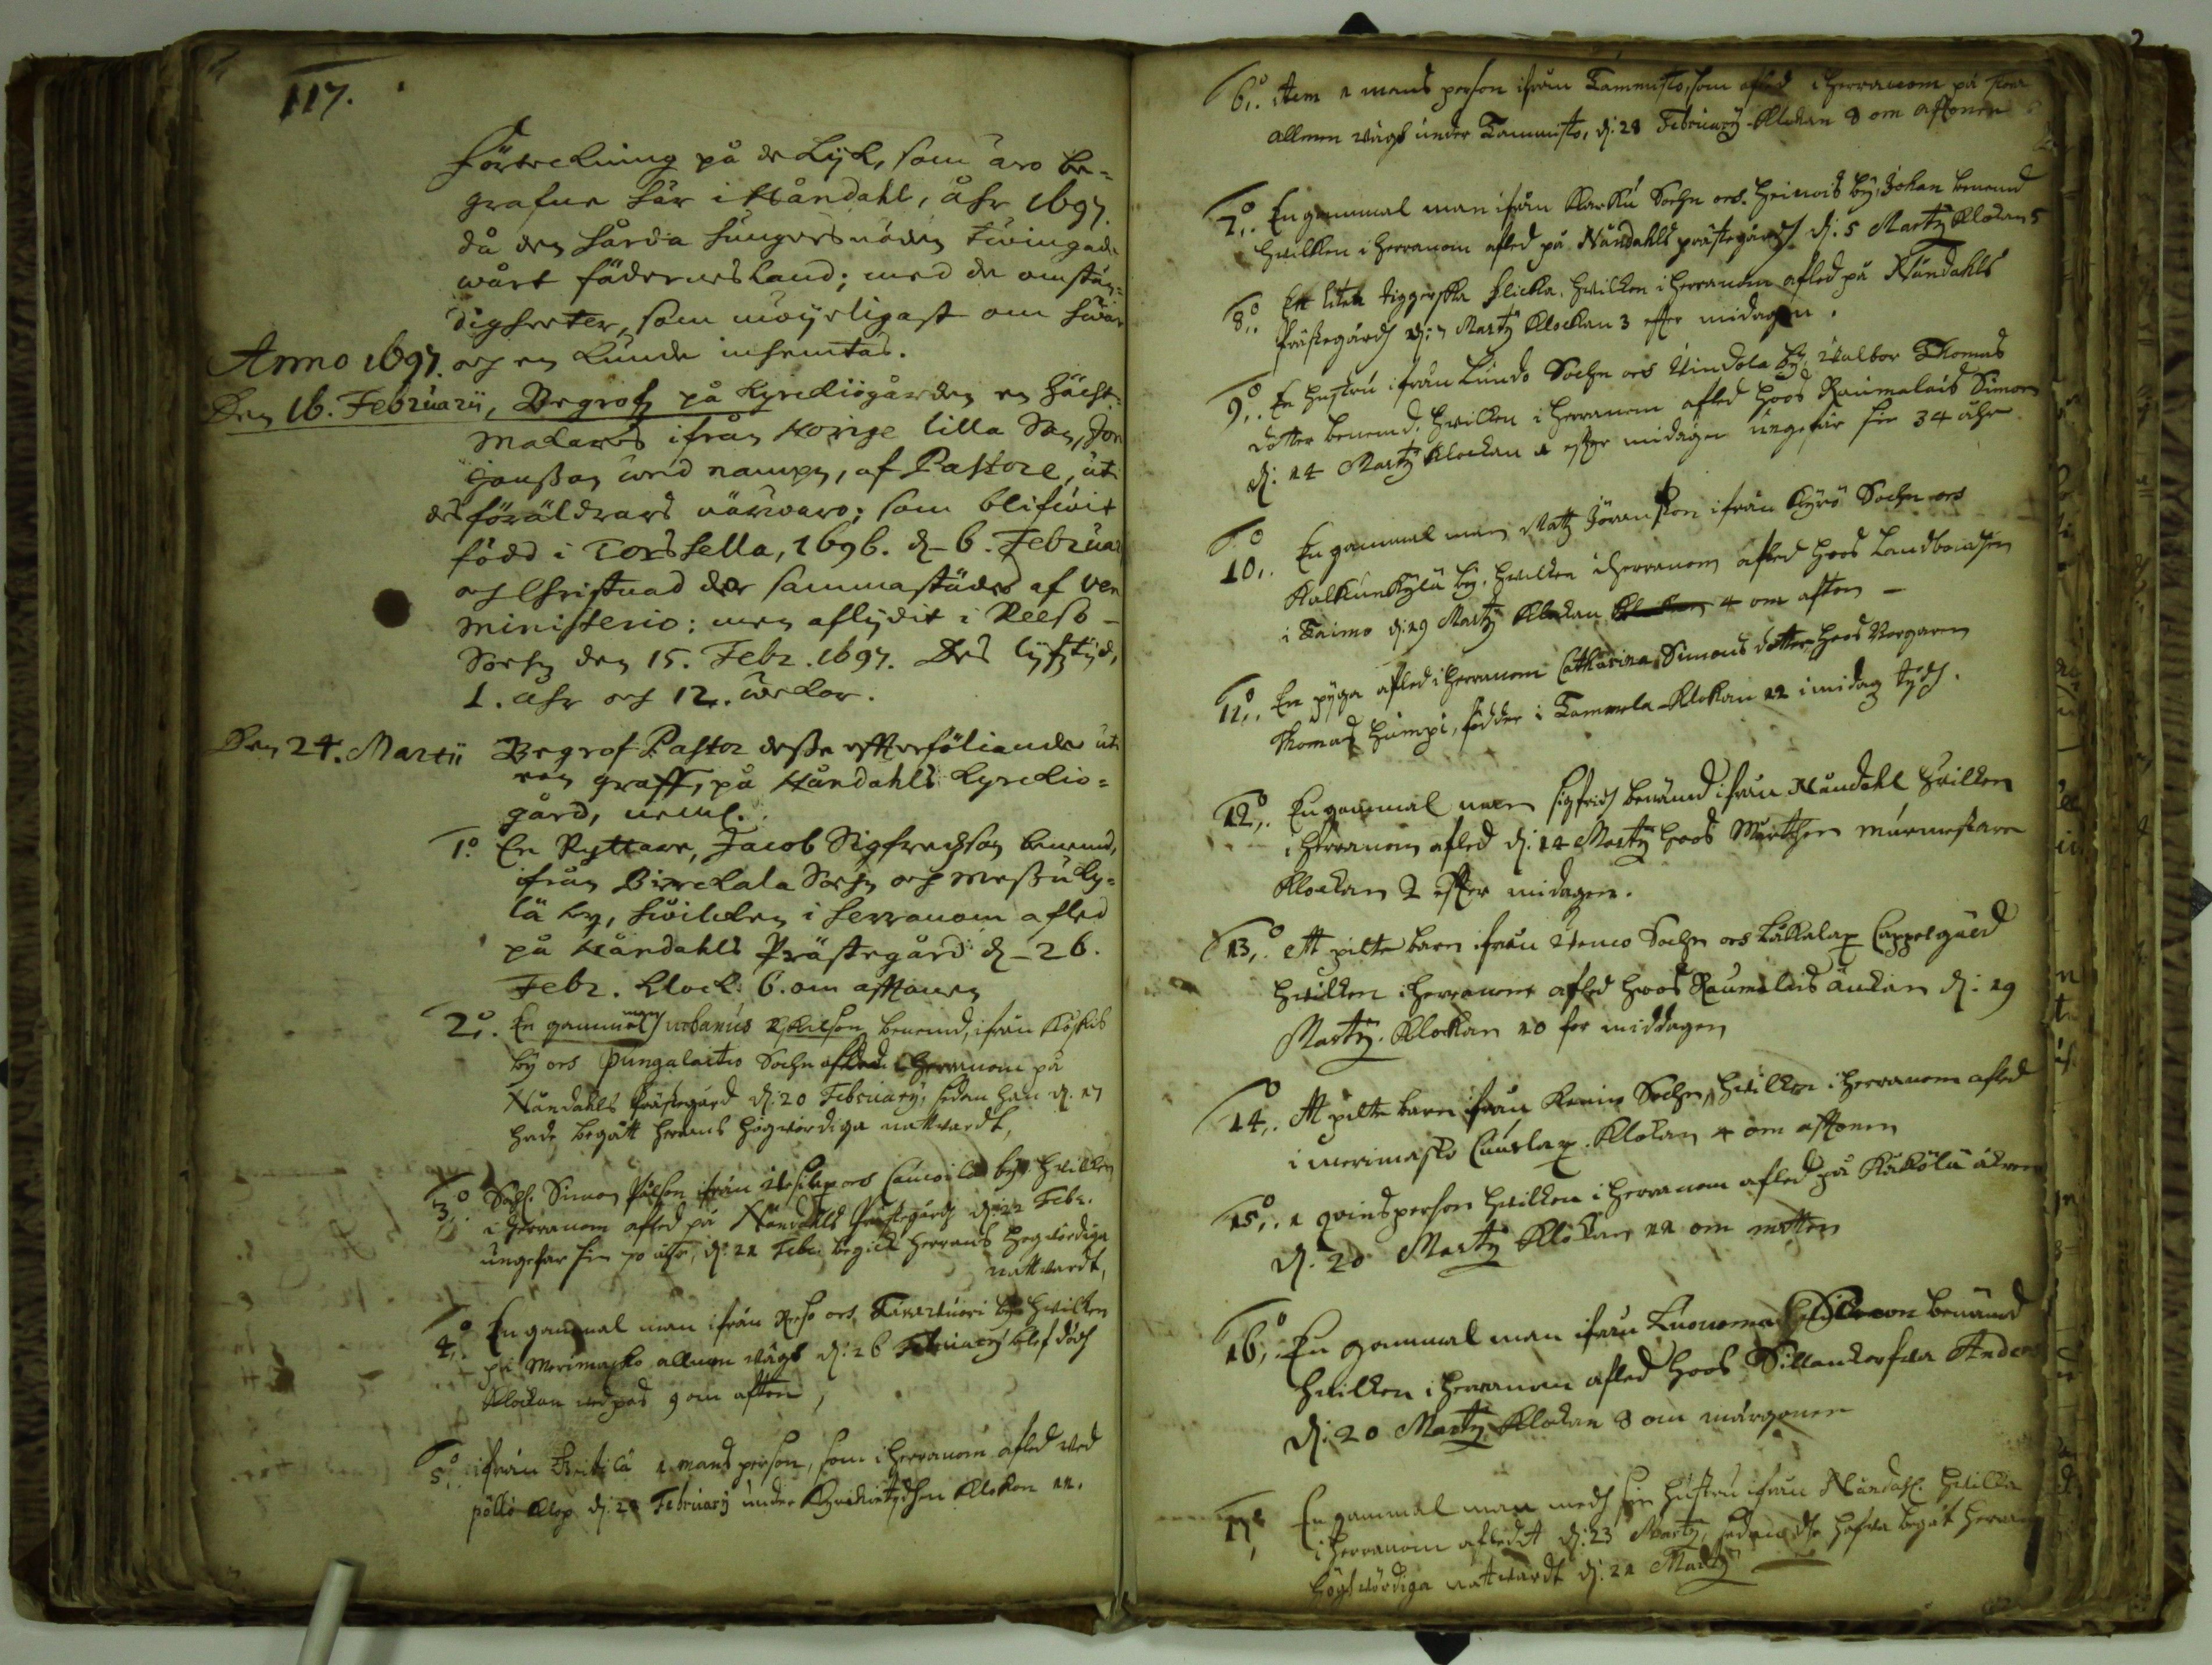 117.
Förtekning på de Lijk, som äro be-
grafne här i Nåndahl, åhr 1697.
då den hårda hungersnöden twingade
wårt fädernesland; med de omstän-
digheeter, som möijeligast om hwar
Anno 1697. och en kunde inhemtas.
Den 16. Februarii, Begrofz på kyrckiogården en
Makares ifrån Norige lilla Son, Jon
Jonsson wid nampn, af Pastore, uti
des föräldrars närwaro; som blifwit
född i Torshella, 1696. d. 6. Februar
och Christnad der sammastädes af Ven
Ministerio: men aflijdit i Reeso
Sochn den 15. Febr. 1697. Des lijfztijd,
1. åhr och 12. wekor.
Den 24. Martii Begrof Pastor desse effterföliande uti
een graff, på Nåndahls kyrckio-
gård, neml.
1.o En Ryttare, Jacob Sigfredhson benemd,
ifrån Birckala Sochn och Messuky-
lä by, hwilcken i herranom afled
på Nåndahls Prästegård d. 26.
Febr. klock. 6. om afftonen
2.o En gammal man Urbanus Eskilson benemd, ifrån
by och Pungalaitio Sochn afled i herranom på
Nåndahls Prästegård d. 20 February, sedan han d. 17
hade begått herrans högwördiga nattwardt,
3.o Simon Pålson ifrån och by hwilken
i herranom afled på Nåndahls Prästegårdh d. 22 Febr.
ungefär sin 70 åhr, d. 21 Febr. begick herrans högwördiga
nattwardt,
4.o En gammal man ifrån Reso och by hwilken
på Merimasko allmen wägh d. 26 February blef dödh
Klockan 9 om afton,
5.o ifrån 1 mans person, som i herranom afled wed
d. 28 February under Kyrkiotydhen Klokan 11.
6.o item 1 mans person ifrån Tammisto, som afled i herranom på
allmen wägh under Tammisto, d. 28 February Klokan 8 om aftonen
7.o En gammal man ifrån Karku Sochn och Heinois by, Johan benemd
hwilken i herranom afled på Nåndahls prästegårdh d. 5 Marty Klokan 5
8.o En liten tiggerska flicka, hwilken i herranom afled på Nåndahls
Prästegårdh d. 7 Marty Klockan 3 efter midagen.
9.o En hustru ifrån Lundo Sochn och Uindola by, Walbor Thomas
dotter benemd, hwilken i herranom afled hoos Raumalais Simon
d. 14 Marty Klockan 1 efter midagen ungefär sin 34 åhr
10.o En gammal man Matz Jöranson ifrån Kyrö Sochn och
by, hwilken i herranom afled hoos Landbondhen
i Taimo d. 19 Marty Klokan 4 om afton
11.o En pyga afled i herranom Catharina Simons dotter hoos Borgaren
Thomas Humpi, födder i Tammela Klokan 12 i midag tydh.
12.o En gammal man Sigfridh benämd ifrån Nåndahl hwilken
i herranom afled d. 14 Marty hoos Mårthen murmestaren
Klockan 2 effter midagen.
13.o Ett pilte barn ifrån Uemo Sochn och Låkalax Cappelgäld
hwilken i herranom afled hoos Raumalais änkian d. 19
Marty. Klockan 10 for middagen
14.o Ett pilte barn ifrån Sochn, hwilken i herranom afled
i merimasko Klokan 4 om afftonen
15.o 1 qvinsperson hwilken i herranom afled på Kåkölä åkren
d. 20 Marty Klokan 11 om natten
16.o En gammal man ifrån Simon benämd
hwilken i herranom afled hoos Anders
d. 20 Marty, Klokan 8 om morgonen
17.o En gammal man medh sin hustru ifrån Nåndahl. hwilka
i herranom afledit d. 23 Marty, sedan dhe hafwa begåt herrans
höghwördiga nattwardt d. 21 Marty